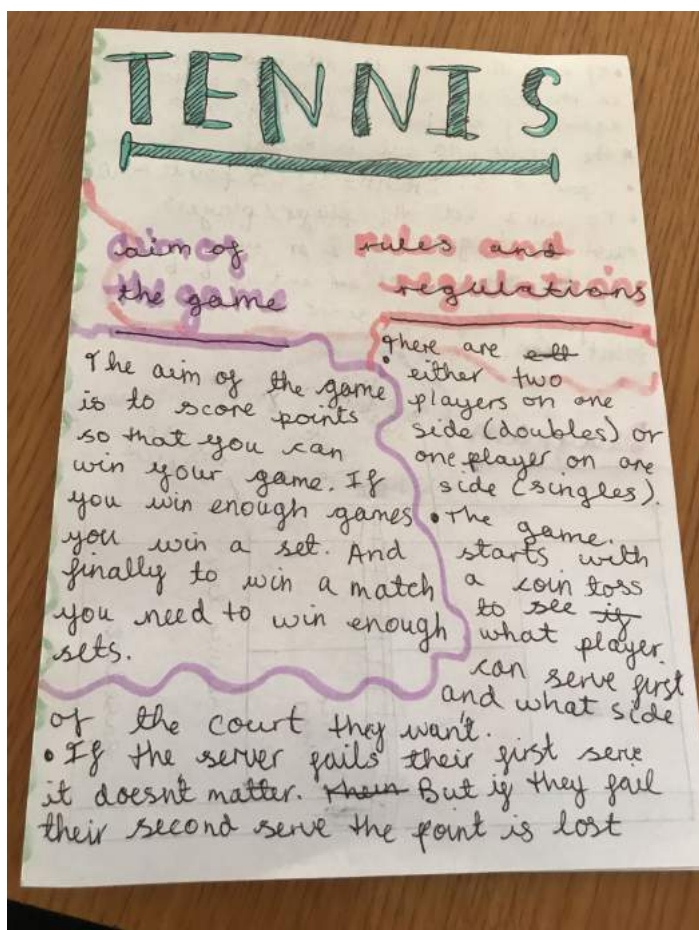 TENNIS
aim of
the game
The aim of the game
is to score points
so that you can
win your game. If
you win enough games
you win a set. And
finally to win a match
you need to win enough
sets.
rules and
regulations
• There are
either two
players on one
side (doubles) or
one player on one
side (singles).
• The game.
starts with
a coin toss
to see if
what player.
can serve first
and what side
of the court they want.
• If the server fails their first serve
it doesn't matter. Their But if they fail
their second serve the point is lost